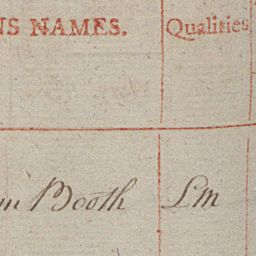 NS NAMES. Qualities
m Booth Lm